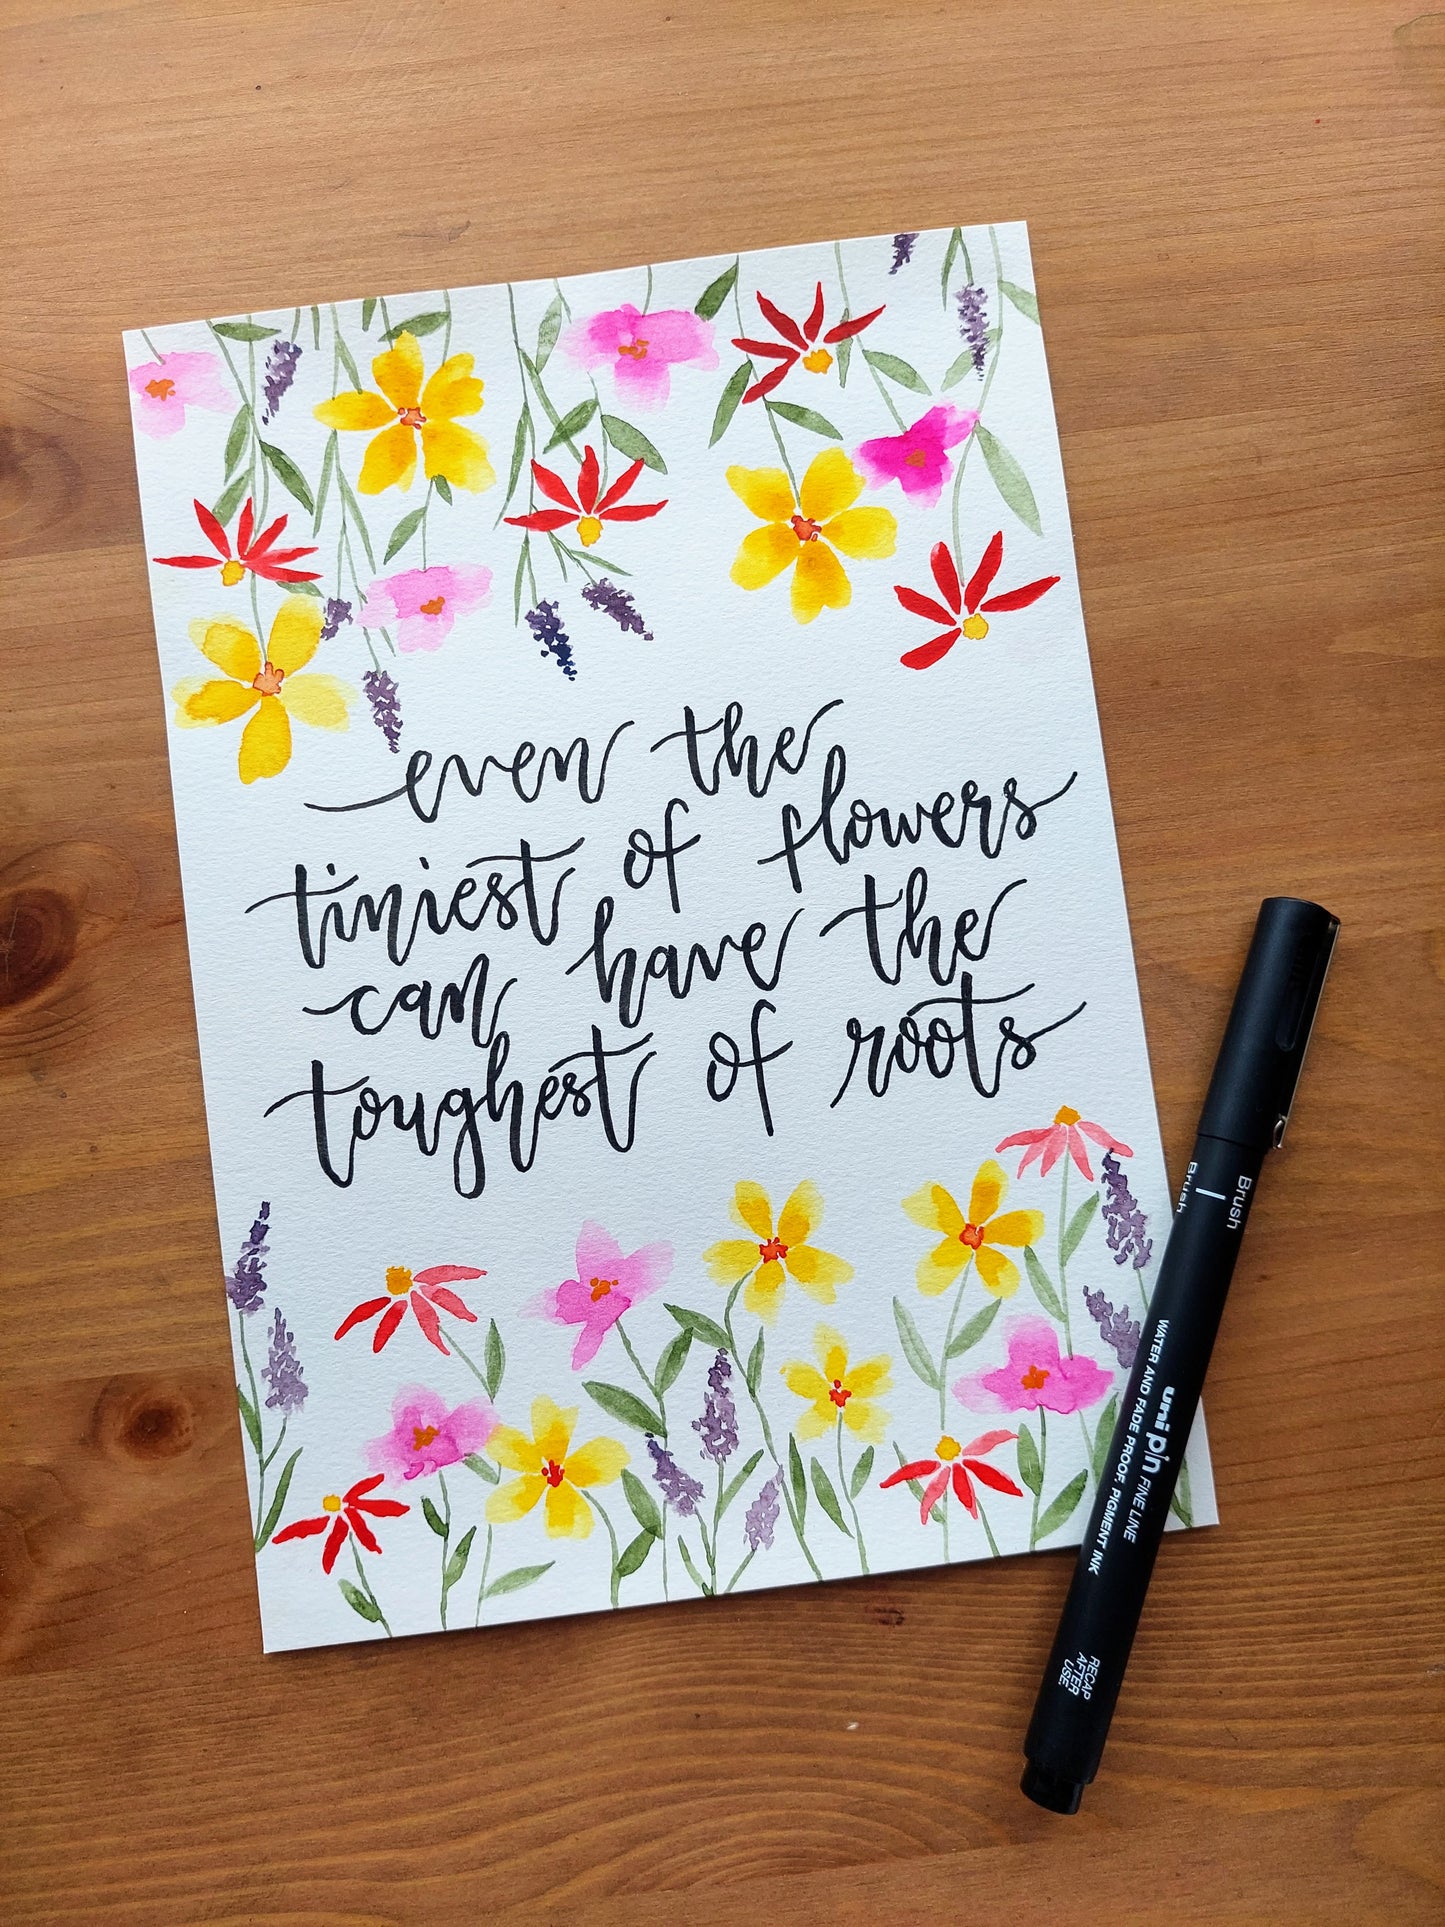 even the
tiniest of flowers
can have the
toughest of roots
Brush
Brush
uni pin FINE LINE
WATER AND FADE PROOF, PIGMENT INK
RECAP
AFTER
USE.